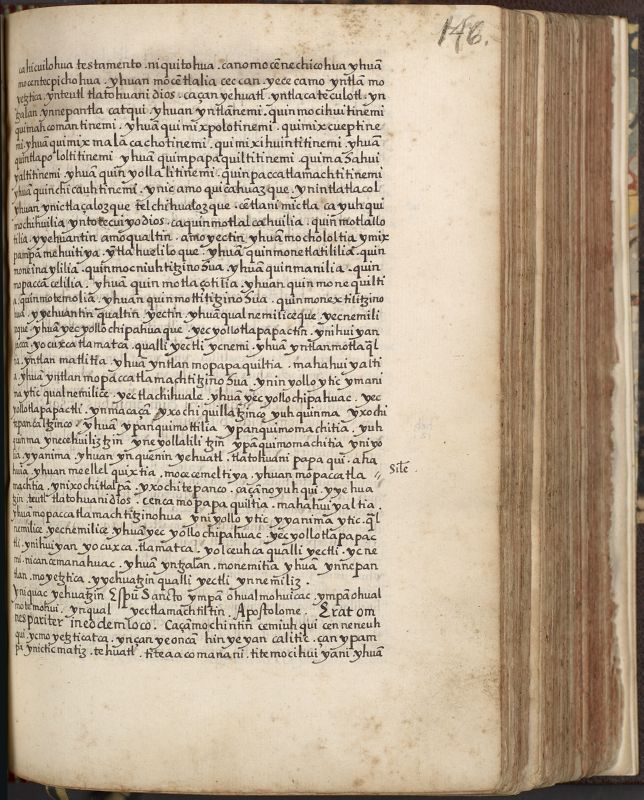 146.
ca hi cuilo hua testamento . ni quito hua . ca no mo cēnechico hua yhuā
mo centecpicho hua . yhuan mo cētlalia cec can . yece camo yntlā mo
yetztica . ynteutl tlato huani dios . ca çan ye huatl . yntlacateculotl . yn
tzalan . ynnepantla catqui . yhuan yntlānemi . quin mocihuitinemi
qui mah coman tinemi . yhuā qui mix polotinemi . qui mix cuep tine
mi . yhuā qui mix ma lā ca cho tinemi . qui mi xi huin ti tinemi . yhuā
quin tlapo lol ti tinemi yhuā quim papa quil ti tinemi . qui ma ahui
yal ti tinemi . yhuā quin yolla li tinemi . quin paccatlamach ti tinemi
yhuā quin chi cauh tinemi . ynic amo qui cahuaz que . ynintlatlacol
yhuan ynictlaçalozque telchihualozque . cētlani mictla ca yuh qui
mochihuilia yntotecuiyo dios . ca quin motlalcahuilia . quin motlallo
tilia . yyehuantin amo qualtin . amo yectin yhuā mochololtia ymix
pampa mehuitiya . ytla huelilo que . yhuā quin monetlatililia . quin
moneinayililia . quin mocniuhtitzinohua . yhuā quin manilia . quin
mopaccā celilia . yhuā quin motlaçotilia . yhuan quin mone quilti
a . quin motemolia . yhuan quin mottititzino hua . quin monextilitzino
hua . yyehuantin qualtin yectin . yhuā qual nemiliceque . yecnemili
ceque . yhuā yec yollo chipahuaque . yec yollotlapapactin . yni hui yan
yocuxcatlamatca . qualli yectli ycnemi . yhuā yntlan motlaql
tia . yntlan matlitia . yhuā yntlan mopapaquiltia . ma hahui yalti
a . yhuā yntlan mopaccatlamachtitzinohua . ynin yollo ytic ymani
ma ytic qualnemilice . yectlachihuale . yhuā yec yollo chipahuac . yec
yollotlapapactli . yn ma ca çā yxochiquillatzinco . yuh quin ma yxochi
tepancaltzinco . yhuā ypan qui mottilia ypan qui momachitia . yuh
quinma ynecehuiliztzin yneyollaliliztzin ypā quimomachitia . yniyo
lia . yyanima . yhuan yn quenin yehuatl . tlatohuani papa qui . aha
huia . yhuan me ellel quixtia . moce cemeltiya . yhuan mopaccatla
machtia . ynixochitlalpā . yxochitepanco . ca çā no yuh qui . yyehua
tzin . teutl tlatohuani dios . cenca mo papa quiltia . mahahui yaltia .
Site .
yhuan mopaccatlamachtitzinohua yni yollo ytic yyanima ytic . ql
nemilice . yecnemilice yhuā yec yollo chipahuac . yec yollotlapapac
tli . yni hui yan yocuxca . tlamatca . yolceuhca qualli yectli . yc ne
mi . nican cemanahuac . yhuā yntzalan . monemitia yhuā ynnepan
tlan . moyetztica . yyehuatzin qualli yectli ynnemiliz .
Yniquac yehuatzin Espū Sancto ympan ohualmohuicac . ympan ohual
motemohui . ynqual yectlamachtiltin . Apostolome . Erat om
nes pariter in eodem loco . Ca çā mochintin cemiuhqui cen neneuh
qui . ycmoyetzticatca . ynçan yeoncā hin ye yan calitic . çan ypam
pa ynictic matiz . tehuatl . tinteaacomanani . titemocihui yani . yhuā